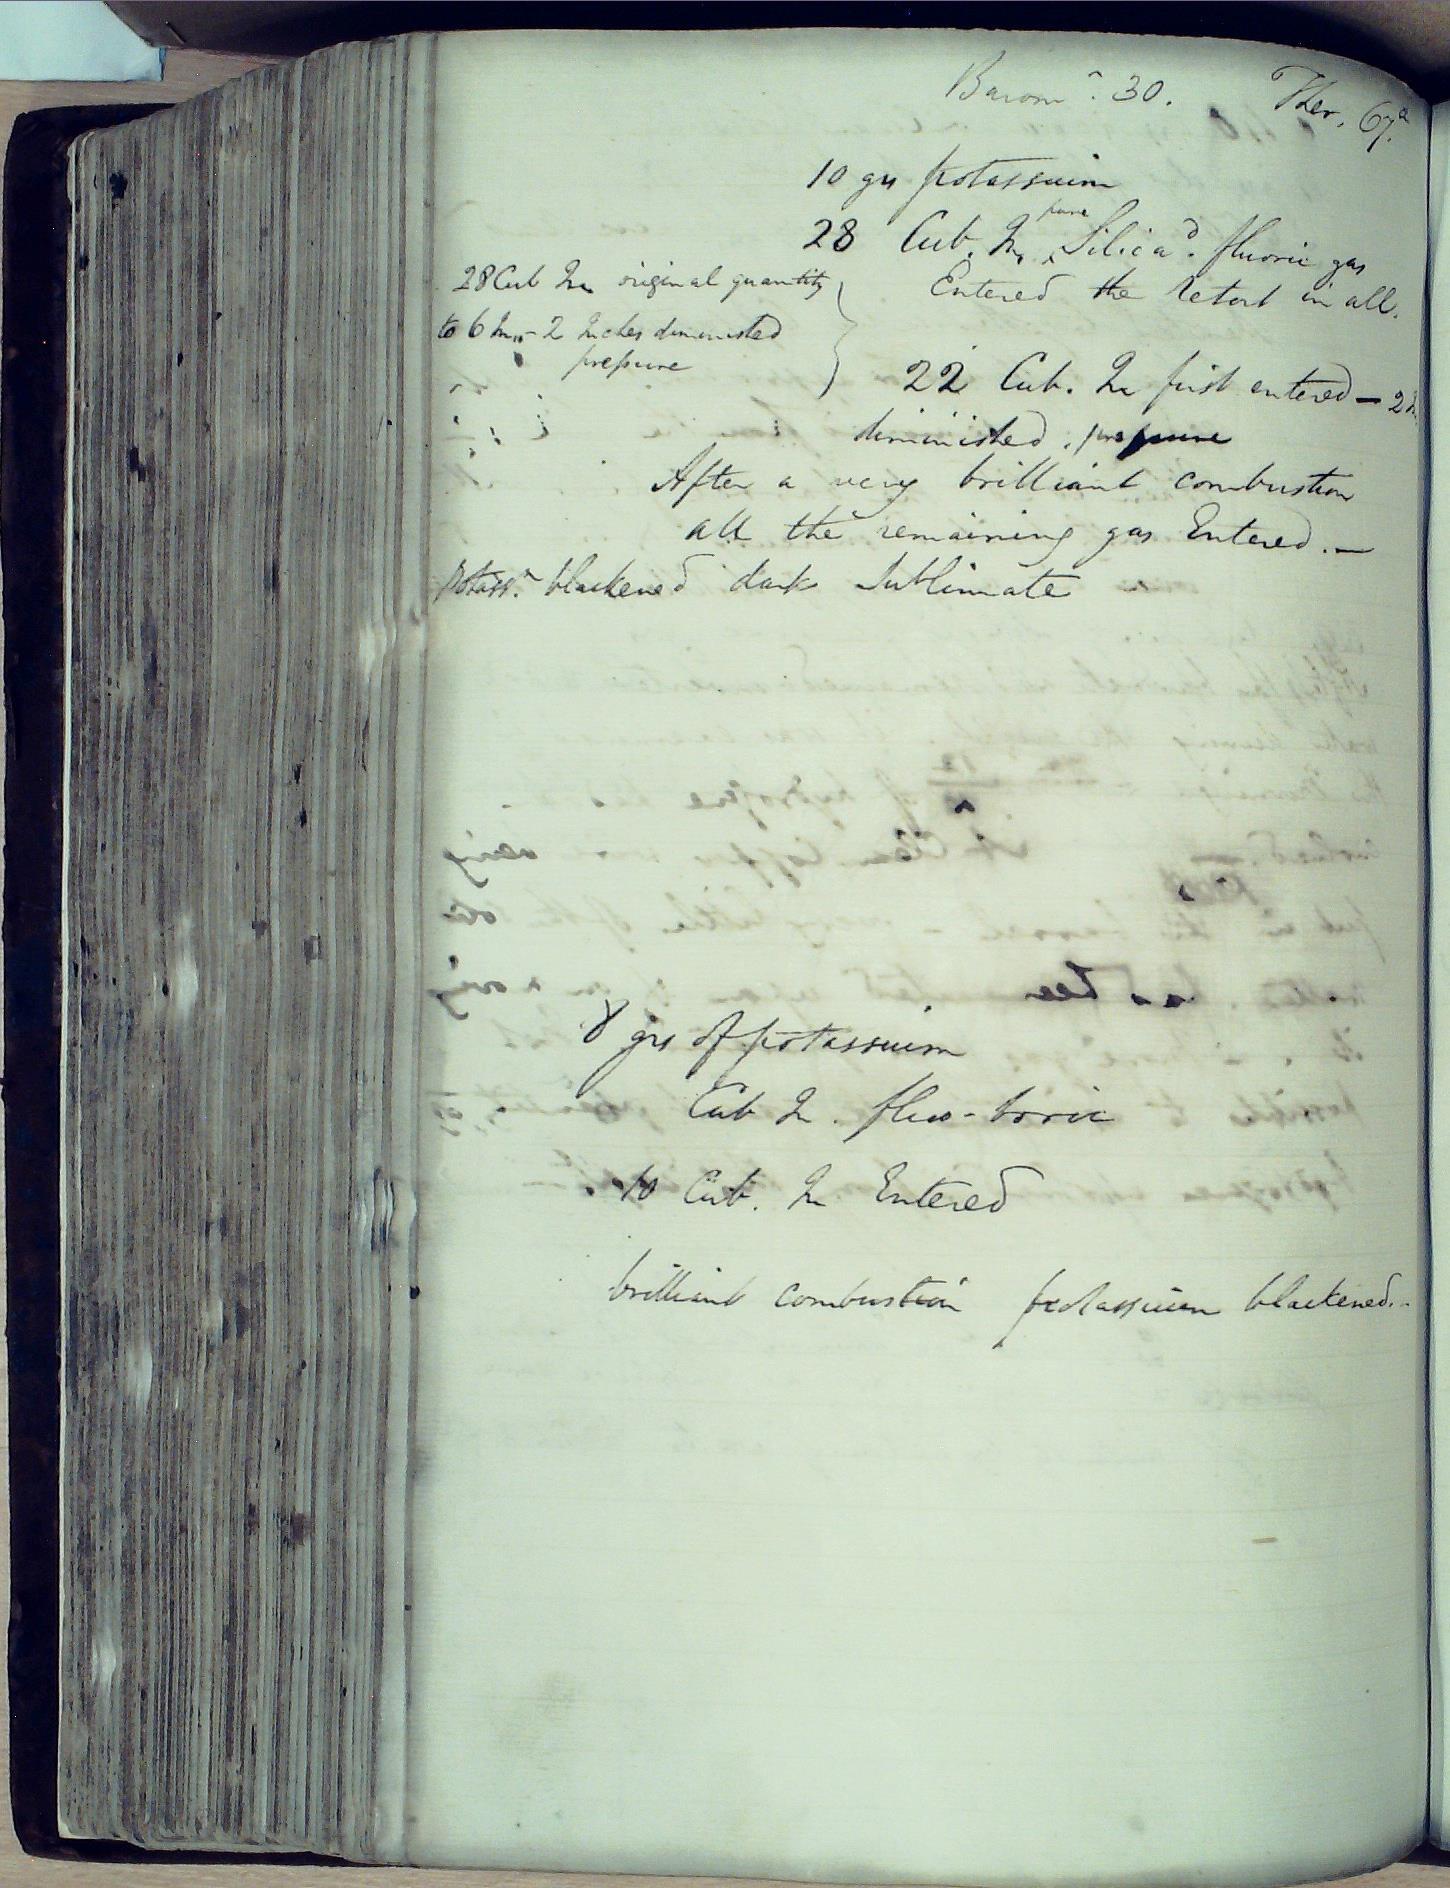 Barom^r. 30. Ther. 67.°
10 grs potassium
28 Cub. In. pure Silica^d. fluoric gas
Entered the retort in all.
28 Cub In original quantity
to 6 In - 2 Inches diminished
pressure
22 Cub. In first entered — 2 In
diminished. pressure
After a very brilliant combustion
all the remaining gas Entered. —
Potass^m. blackened dark Sublimate
8 grs of potassium
Cub In. fluo-boric
10 Cub. In Entered
brilliant combustion potassium blackened. -